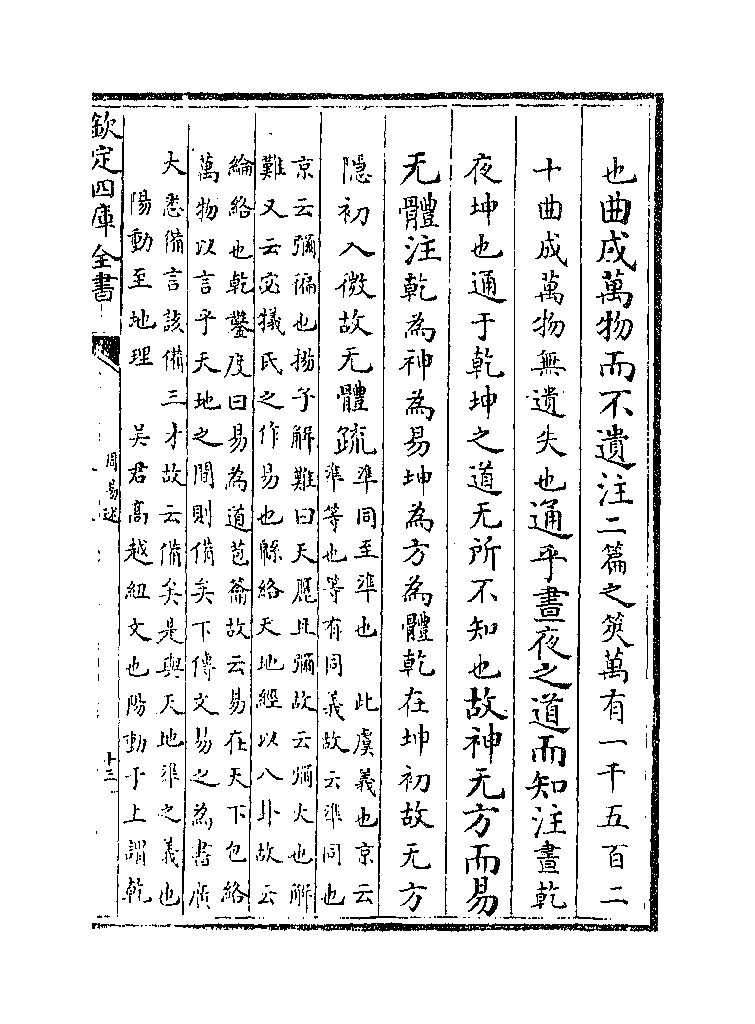 也曲成萬物而不遺注二篇之筴萬有一千五百二
十曲成萬物無遺失也通乎晝夜之道而知注晝乾
夜坤也通于乾坤之道无所不知也故神无方而易
无體注乾為神為易坤為方為體乾在坤初故无方
隱初入微故无體疏
準同至準也　此虞義也京云
準等也等有同義故云準同也
京云彌徧也揚子解難曰天麗且彌故云彌大也解
難又云宓犧氏之作易也緜絡天地經以八卦故云
綸絡也乾鑿度曰易為道苞籥故云易在天下包絡
萬物以言乎天地之間則備矣下傳文易之為書廣
大悉備言該備三才故云備矣是與天地準之義也
陽動至地理　吳君高越紐文也陽動于上謂乾
欽定四庫全書
周易述
十三